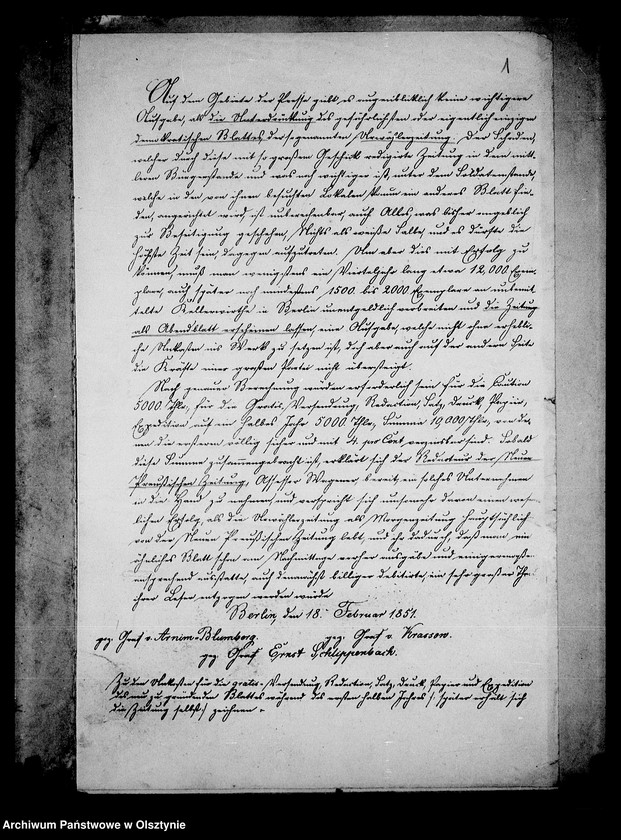 1
Auf dem Gebiete der Presse giebt es augenblicklich keine wichtigere
Aufgabe, als die Unterdrückung des gefährlichsten oder eigentlich einzigen
demokratischen Blattes der sogenannten Urwählerzeitung. Der Schaden,
welcher durch diese mit so großem Geschick redigirte Zeitung in dem mitt-
leren Bürgerstande und was noch wichtiger ist, unter dem Soldatenstande,
welche in den von ihnen besuchten Lokalen kaum ein anderes Blatt fin-
den, angerichtet wird ist unberechenbar, auch Alles, was bisher angeblich
zur Beseitigung geschehen, Nichts als weiße Salbe, und es dürfte die
höchste Zeit sein, dagegen aufzutreten. Um aber dies mit Erfolg zu
können, muß man wenigstens ein Vierteljahr lang etwa 12,000 Exem-
plare, auch später noch mindestens 1500 bis 2000 Exemplare an
Kellerwirthe in Berlin unentgeldlich verbreiten und die Zeitung
als Abendblatt erscheinen lassen, eine Aufgabe, welche nicht ohne erhebli-
che Unkosten ins Werk zu setzen ist, doch aber auch auf der andern Seite
die Kräfte einer großen Partei nicht übersteigt.
Nach genauer Berechnung würden erforderlich sein für die Caution
5000 Thlr, für die Gratis-Versendung, Redaction, Satz, Druck, Papier,
Expedition auf ein halbes Jahr 5000 Thlr, Summa 10,000 Thlr, von de-
nen die ersteren völlig sicher und mit 4 pro Cent verzinslich sind. Sobald
diese Summe zusammengebracht ist, erklärt sich der Redacteur der Neuen
Preußischen Zeitung, Assessor Wagener bereit, ein solches Unternehmen
in die Hand zu nehmen, und verspricht sich davon einen
Erfolg, als die Urwählerzeitung als Morgenzeitung hauptsächlich
von der Neuen Preußischen Zeitung lebt, und ihr dadurch, daß man ein
ähnliches Blatt schon am Nachmittage vorher ausgäbe und einigermaßen
ansprechend ausstatte, auch demnächst billiger debitirte, ein sehr großer Theil
ihrer Leser entzogen werden würde.
Berlin, den 18. Februar 1851.
gez. Graf v. Arnim-Blumberg. gez. Graf v. Krassow.
gez. Graf Ernst Schlippenbach.
Zu den Unkosten für die gratis-Versendung, Redaction, Satz, Druck, Papier und Expedition
des neu zu gründenden Blattes während des ersten halben Jahres (: später erhält sich
die Zeitung selbst :) zeichnen.
Archiwum Państwowe w Olsztynie